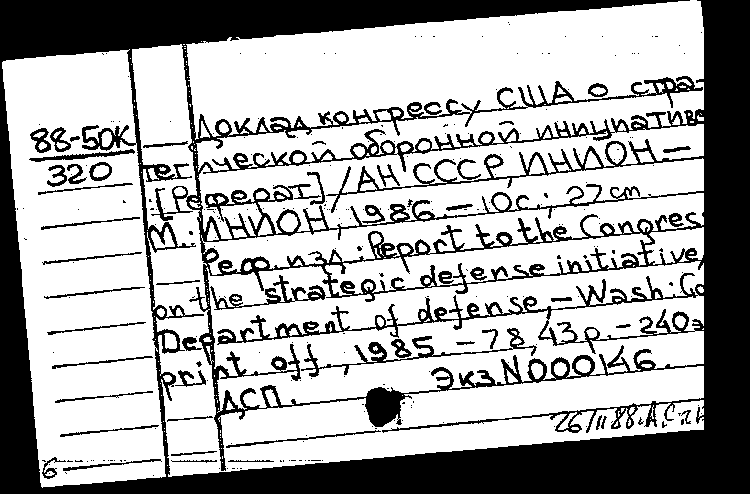 88-50К
320
Доклад конгрессу США о стра-
тегической оборонной инициативе
[Реферат] / АН СССР, ИНИОН. —
М.: ИНИОН, 1986. — 10с.; 27 cm.
Реф. изд.: Report to the Congress
on the strategic defense initiative/
Department of defense, — Wash: Go
print. off., 1985. — 78, 43 p. — 240э
Экз. N 000146.
ДСП.
26/II 88.
6